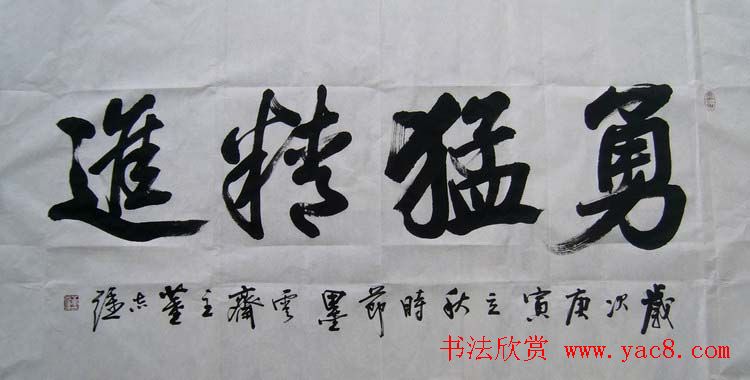 勇猛精進
歲次庚寅立秋時節墨雲齋主董志强
书法欣赏 www.yac8.com